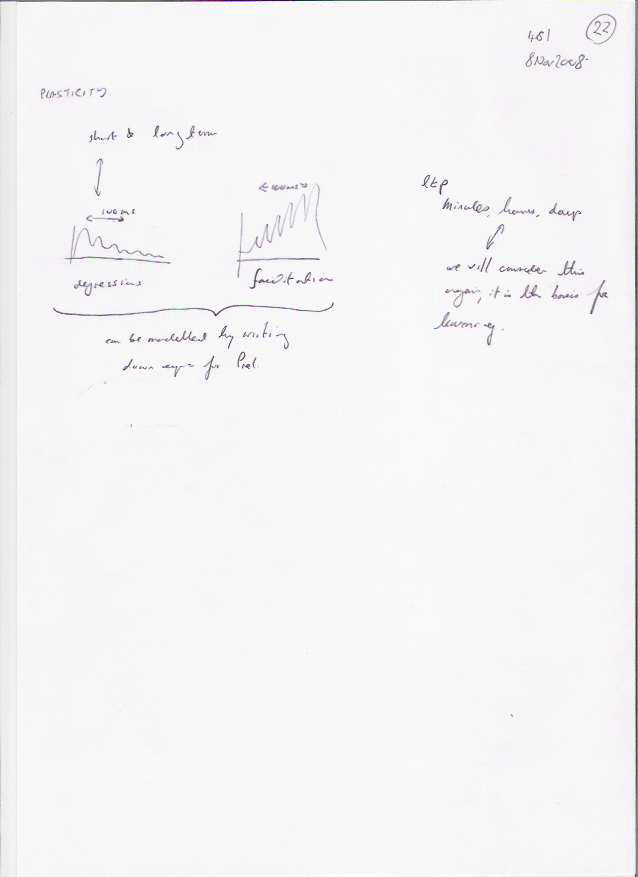 22
451
8Nov2008
PLASTICITY
short & long term
100ms
depressions
<100ms>
facilitation
can be modelled by writing
down eqns for Prel.
ltp
Minutes, hours, days
we will consider this
again, it is the basis for
learning.